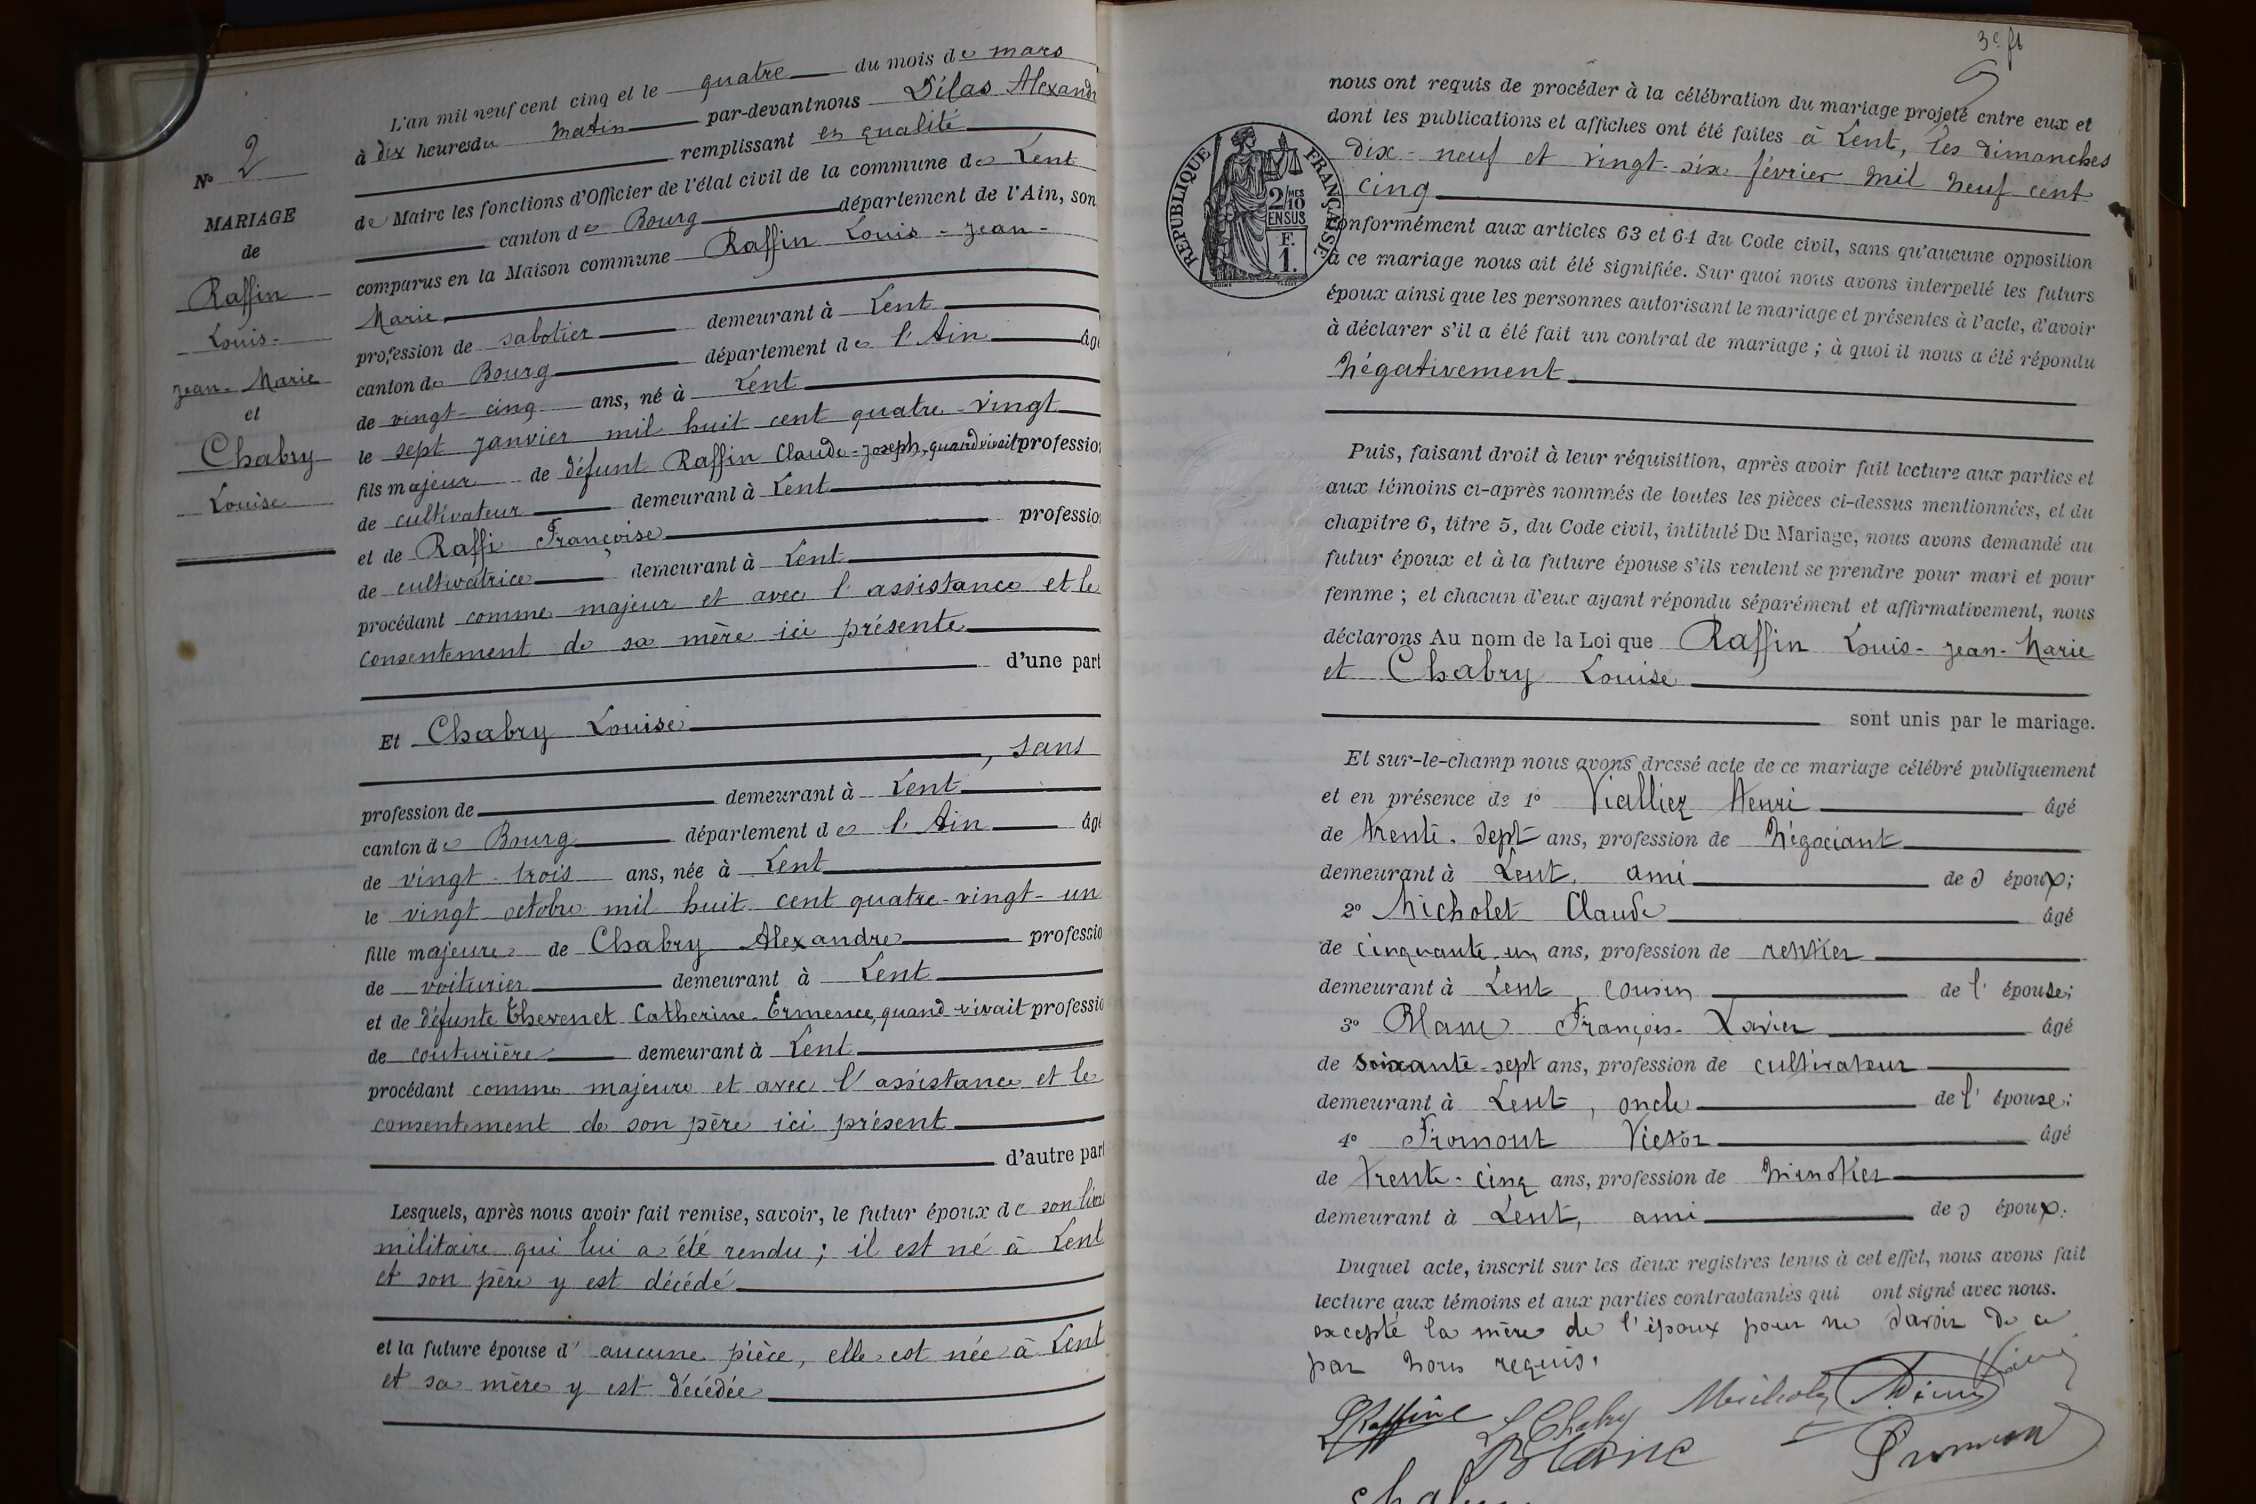 N° 2
MARIAGE
de
Raffin
Louis-
Jean-Marie
et
Chabry
Louise
L'an mil neuf cent cinq et le quatre du mois de mars
à dix heures du matin par-devant nous Dilas Alexand
remplissant en qualité
de Maire les fonctions d'Officier de l'état civil de la commune de Lent
canton de Bourg département de l'Ain, son
comparus en la Maison commune Raffin Louis-Jean-
Marie
profession de sabotier demeurant à Lent
canton de Bourg département de l'Ain âg
de vingt-cinq ans, né à Lent
le sept janvier mil huit cent quatre-vingt
fils majeur de défunt Raffin Claude-Joseph, quand vivait profession
de cultivateur demeurant à Lent
et de Raffi Françoise profession
de cultivatrice demeurant à Lent
procédant comme majeur et avec l'assistance et le
consentement de sa mère ici présente
d'une part
Et Chabry Louise
, sans
profession de demeurant à Lent
canton de Bourg département de l'Ain âgé
de vingt-trois ans, née à Lent
le vingt octobre mil huit cent quatre-vingt-un
fille majeure de Chabry Alexandre professio
de voiturier demeurant à Lent
et de défunte Thevenet Catherine-Ermence, quand vivait professio
de couturière demeurant à Lent
procédant comme majeure et avec l'assistance et le
consentement de son père ici présent
d'autre part
Lesquels, après nous avoir fait remise, savoir, le futur époux de son livre
militaire qui lui a été rendu ; il est né à Lent
et son père y est décédé
et la future épouse d'aucune pièce, elle est née à Lent
et sa mère y est décédée
3e ft
nous ont requis de procéder à la célébration du mariage projeté entre eux et
dont les publications et affiches ont été faites à Lent, les dimanches
dix-neuf et vingt-six février mil neuf cent
cinq
RÉPUBLIQUE FRANÇAISE
2/10 MES
EN SUS
F.
1.
conformément aux articles 63 et 64 du Code civil, sans qu'aucune opposition
à ce mariage nous ait été signifiée. Sur quoi nous avons interpellé les futurs
époux ainsi que les personnes autorisant le mariage et présentes à l'acte, d'avoir
à déclarer s'il a été fait un contrat de mariage ; à quoi il nous a été répondu
négativement
Puis, faisant droit à leur réquisition, après avoir fait lecture aux parties et
aux témoins ci-après nommés de toutes les pièces ci-dessus mentionnées, et du
chapitre 6, titre 5, du Code civil, intitulé Du Mariage, nous avons demandé au
futur époux et à la future épouse s'ils veulent se prendre pour mari et pour
femme ; et chacun d'eux ayant répondu séparément et affirmativement, nous
déclarons Au nom de la Loi que Raffin Louis-Jean-Marie
et Chabry Louise
sont unis par le mariage.
Et sur-le-champ nous avons dressé acte de ce mariage célébré publiquement
et en présence de 1° Viallier Henri âgé
de trente-sept ans, profession de négociant
demeurant à Lent, ami de l'époux;
2° Michelet Claude âgé
de cinquante-un ans, profession de rentier
demeurant à Lent, cousin de l'épouse;
3° Blanc François-Xavier âgé
de soixante-sept ans, profession de cultivateur
demeurant à Lent, oncle de l'épouse;
4° Fromont Victor âgé
de trente-cinq ans, profession de minotier
demeurant à Lent, ami de l'époux.
Duquel acte, inscrit sur les deux registres tenus à cet effet, nous avons fait
lecture aux témoins et aux parties contractantes qui ont signé avec nous.
excepté la mère de l'époux pour ne savoir de ce
par nous requis.
L Chabry
Blanc